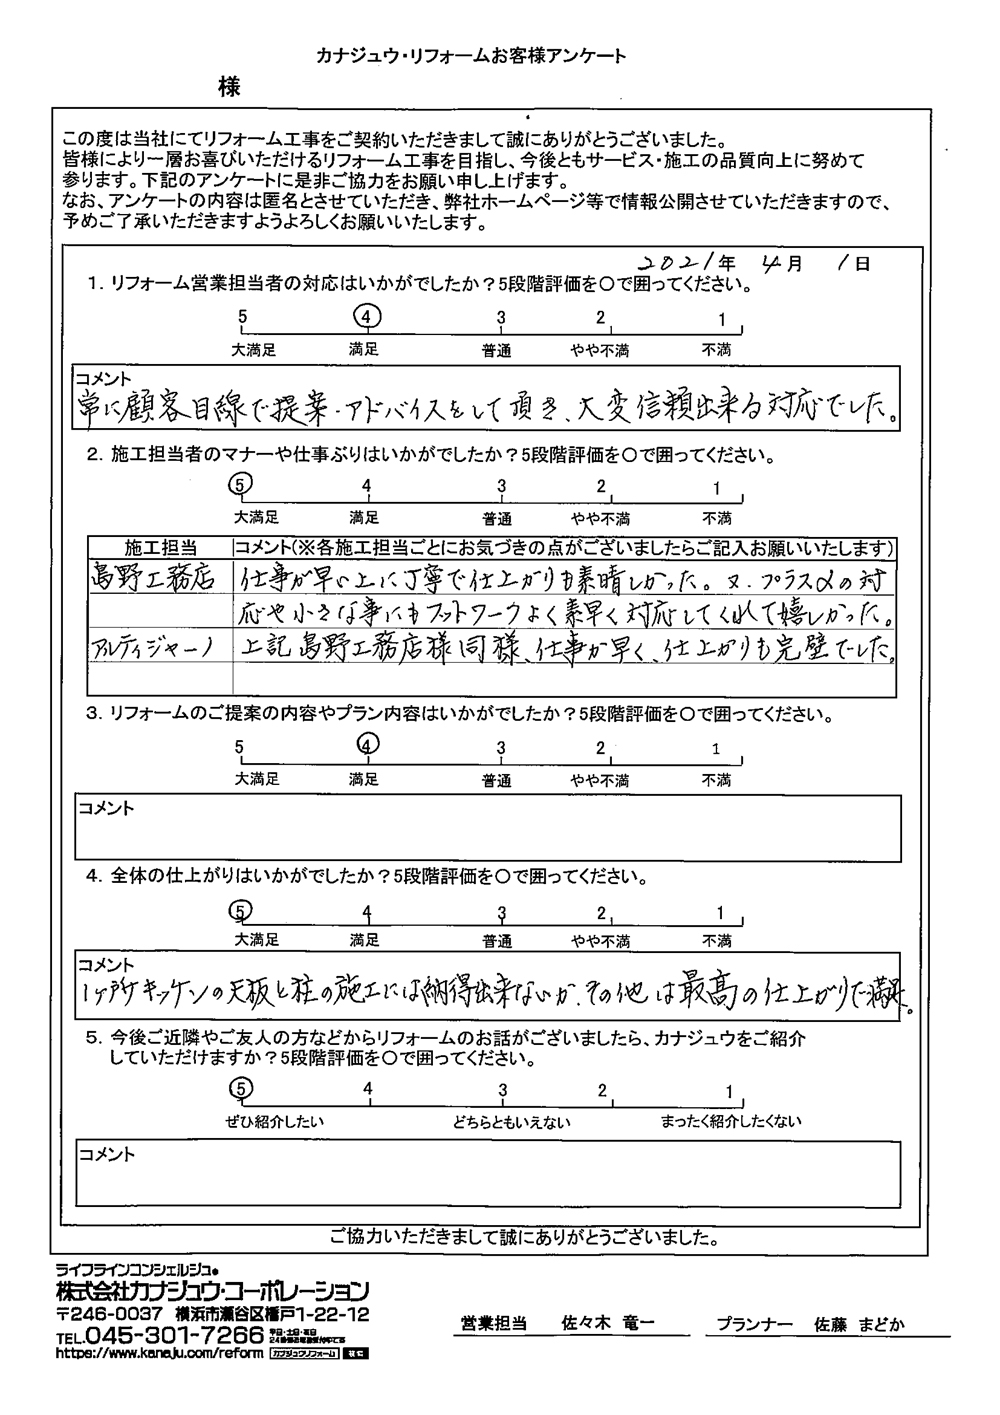 カナジュウ・リフォームお客様アンケート
様
この度は当社にてリフォーム工事をご契約いただきまして誠にありがとうございました。
皆様により一層お喜びいただけるリフォーム工事を目指し、今後ともサービス・施工の品質向上に努めて
参ります。下記のアンケートに是非ご協力をお願い申し上げます。
なお、アンケートの内容は匿名とさせていただき、弊社ホームページ等で情報公開させていただきますので、
予めご了承いただきますようよろしくお願いいたします。
2021年 4月 1日
1. リフォーム営業担当者の対応はいかがでしたか？5段階評価を〇で囲ってください。
5 ④ 3 2 1
大満足 満足 普通 やや不満 不満
コメント
常に顧客目線で提案・アドバイスをして頂き、大変信頼出来る対応でした。
2. 施工担当者のマナーや仕事ぶりはいかがでしたか？5段階評価を〇で囲ってください。
⑤ 4 3 2 1
大満足 満足 普通 やや不満 不満
施工担当 コメント(※各施工担当ごとにお気づきの点がございましたらご記入お願いいたします)
島野工務店 仕事が早い上に丁寧で仕上がりも素晴しかった。又、プラスαの対
応や小さな事にもフットワークよく素早く対応してくれて嬉しかった。
アルティジャーノ 上記島野工務店様同様、仕事が早く、仕上がりも完璧でした。
3. リフォームのご提案の内容やプラン内容はいかがでしたか？5段階評価を〇で囲ってください。
5 ④ 3 2 1
大満足 満足 普通 やや不満 不満
コメント
4. 全体の仕上がりはいかがでしたか？5段階評価を〇で囲ってください。
⑤ 4 3 2 1
大満足 満足 普通 やや不満 不満
コメント
1ヶ所キッチンの天板と柱の施工には納得出来ないが、その他は最高の仕上がりで満足。
5. 今後ご近隣やご友人の方などからリフォームのお話がございましたら、カナジュウをご紹介
していただけますか？5段階評価を〇で囲ってください。
⑤ 4 3 2 1
ぜひ紹介したい どちらともいえない まったく紹介したくない
コメント
ご協力いただきまして誠にありがとうございました。
ライフラインコンシェルジュ
株式会社カナジュウ・コーポレーション
〒246-0037 横浜市瀬谷区橋戸1-22-12
TEL.045-301-7266 平日・土日・祝日
https://www.kanaju.com/reform カナジュウリフォーム 検索
営業担当 佐々木 竜一 プランナー 佐藤 まどか